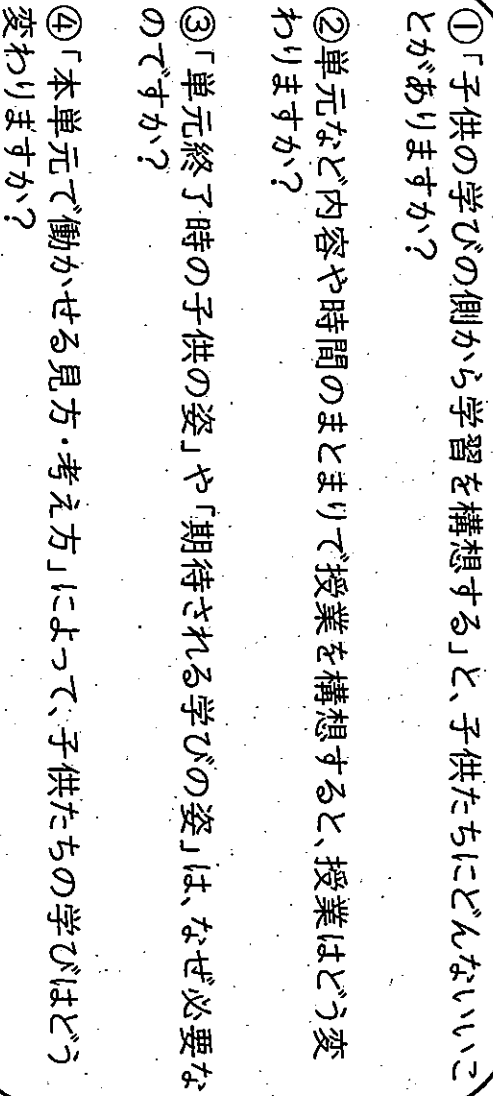 ①「子供の学びの側から学習を構想する」と、子供たちにどんないいこ
とがありますか？
②単元など内容や時間のまとまりで授業を構想すると、授業はどう変
わりますか？
③「単元終了時の子供の姿」や「期待される学びの姿」は、なぜ必要な
のですか？
④「本単元で働かせる見方・考え方」によって、子供たちの学びはどう
変わりますか？